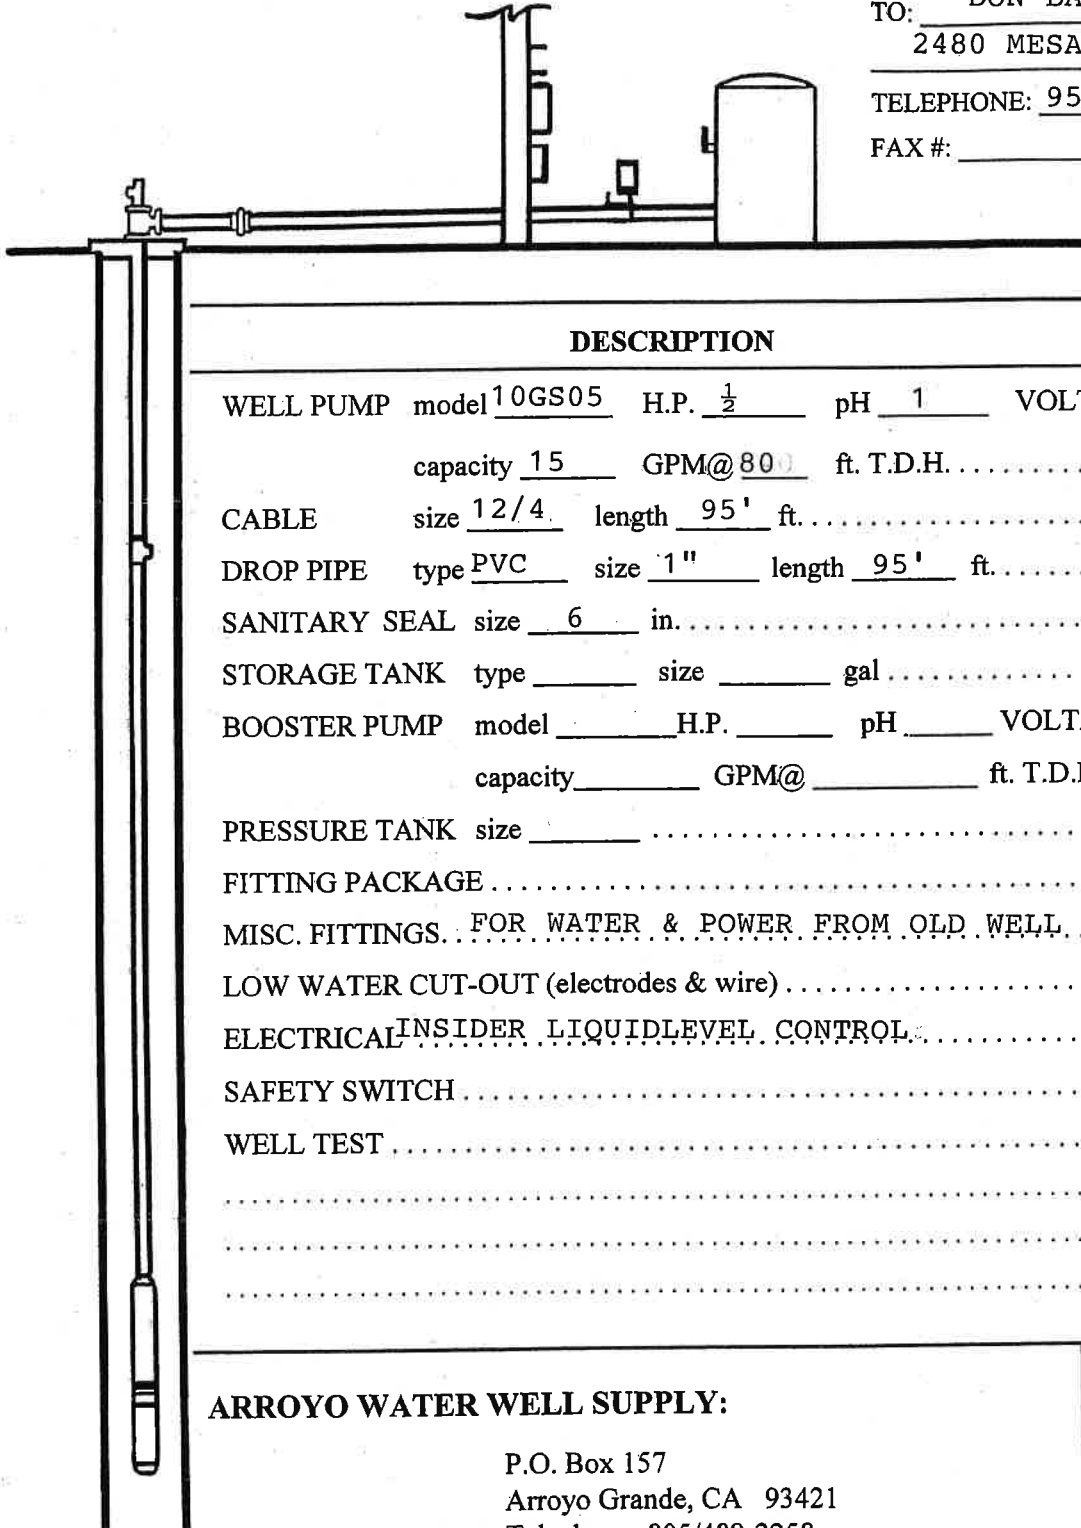 TO:
2480 MESA
TELEPHONE: 95
FAX #:
DESCRIPTION
WELL PUMP model 10GS05 H.P. ½ pH 1 VOLT
capacity 15 GPM@ 80 ft. T.D.H.
CABLE size 12/4 length 95' ft.
DROP PIPE type PVC size 1" length 95' ft.
SANITARY SEAL size 6 in.
STORAGE TANK type size gal
BOOSTER PUMP model H.P. pH VOLT
capacity GPM@ ft. T.D.
PRESSURE TANK size
FITTING PACKAGE
MISC. FITTINGS. FOR WATER & POWER FROM OLD WELL
LOW WATER CUT-OUT (electrodes & wire)
ELECTRICAL INSIDER LIQUIDLEVEL CONTROL
SAFETY SWITCH
WELL TEST
ARROYO WATER WELL SUPPLY:
P.O. Box 157
Arroyo Grande, CA 93421